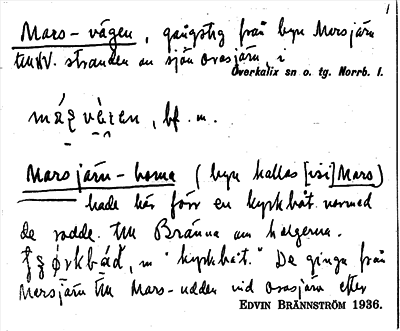 1
Mars-vägen, gångstig från byn Marsjärv
till NV. stranden av sjön Orasjärv, i
Överkalix sn o. tg. Norrb. l.
bf. m.
Marsjärv-borna (byn kallas [isi] Mars)
hade här förr en kyrkbåt varmed
de rodde till Bränna om helgerna.
m "kyrkbåt." De gingo från
Marsjärv till Mars-udden vid Orasjärv efter
EDVIN BRÄNNSTRÖM 1936.